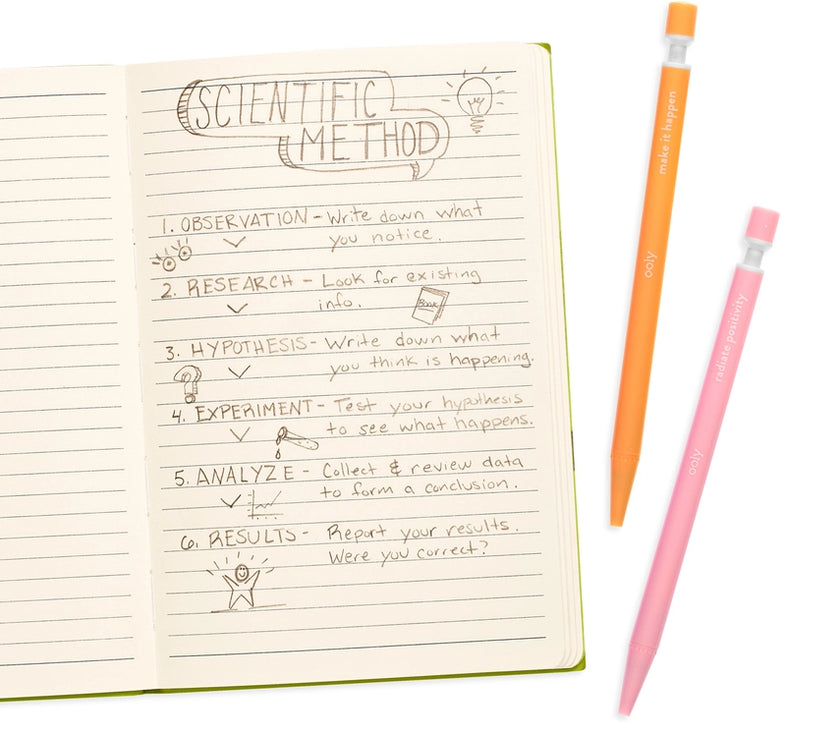 SCIENTIFIC
METHOD
1. OBSERVATION - Write down what
you notice.
2. RESEARCH - Look for existing
info.
BOOK
3. HYPOTHESIS - Write down what
you think is happening.
4. EXPERIMENT - Test your hypothesis
to see what happens.
5. ANALYZE - Collect & review data
to form a conclusion.
6. RESULTS - Report your results.
Were you correct?
make it happen
ooly
radiate positivity
ooly